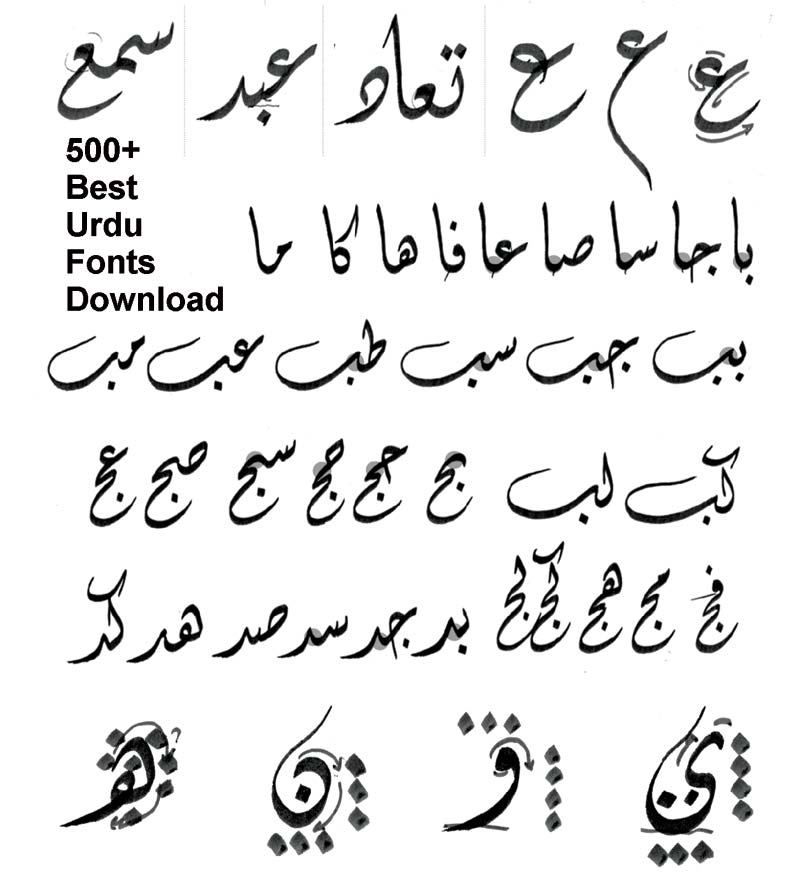 سمع عبد تعاد ع ع ع
500+
Best
Urdu
Fonts
Download
با جا سا صا عا فا ها كا ما
بب جب سب طب عب مب
كب لب بج سج صج عج
فج مج هج كج لج بد جد سد صد هد كد
و ن